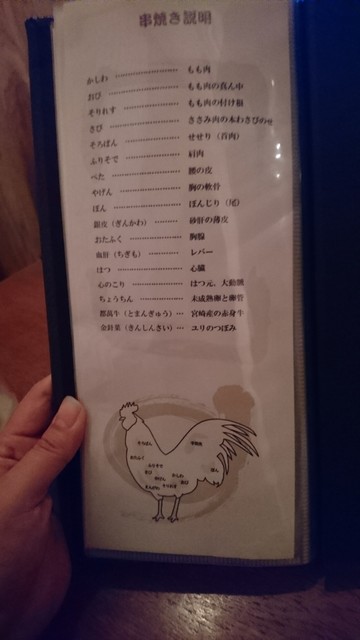 串焼き説明
かしわ ………………… もも肉
おび ………………… もも肉の真ん中
そりれす ………………… もも肉の付け根
さび ………………… ささみ肉の本わさびのせ
そろばん ………………… せせり（首肉）
ふりそで ………………… 肩肉
ぺた ………………… 腰の皮
やげん ………………… 胸の軟骨
ぼん ………………… ぼんじり（尾）
銀皮（ぎんかわ） ………… 砂肝の薄皮
おたふく ………………… 胸腺
血肝（ちぎも） ………… レバー
はつ ………………… 心臓
心のこり ………………… はつ元、大動脈
ちょうちん ………… 未成熟卵と卵管
都萬牛（とまんぎゅう） … 宮崎産の赤身牛
金針菜（きんしんさい） … ユリのつぼみ
そろばん
おたふく
ふりそで